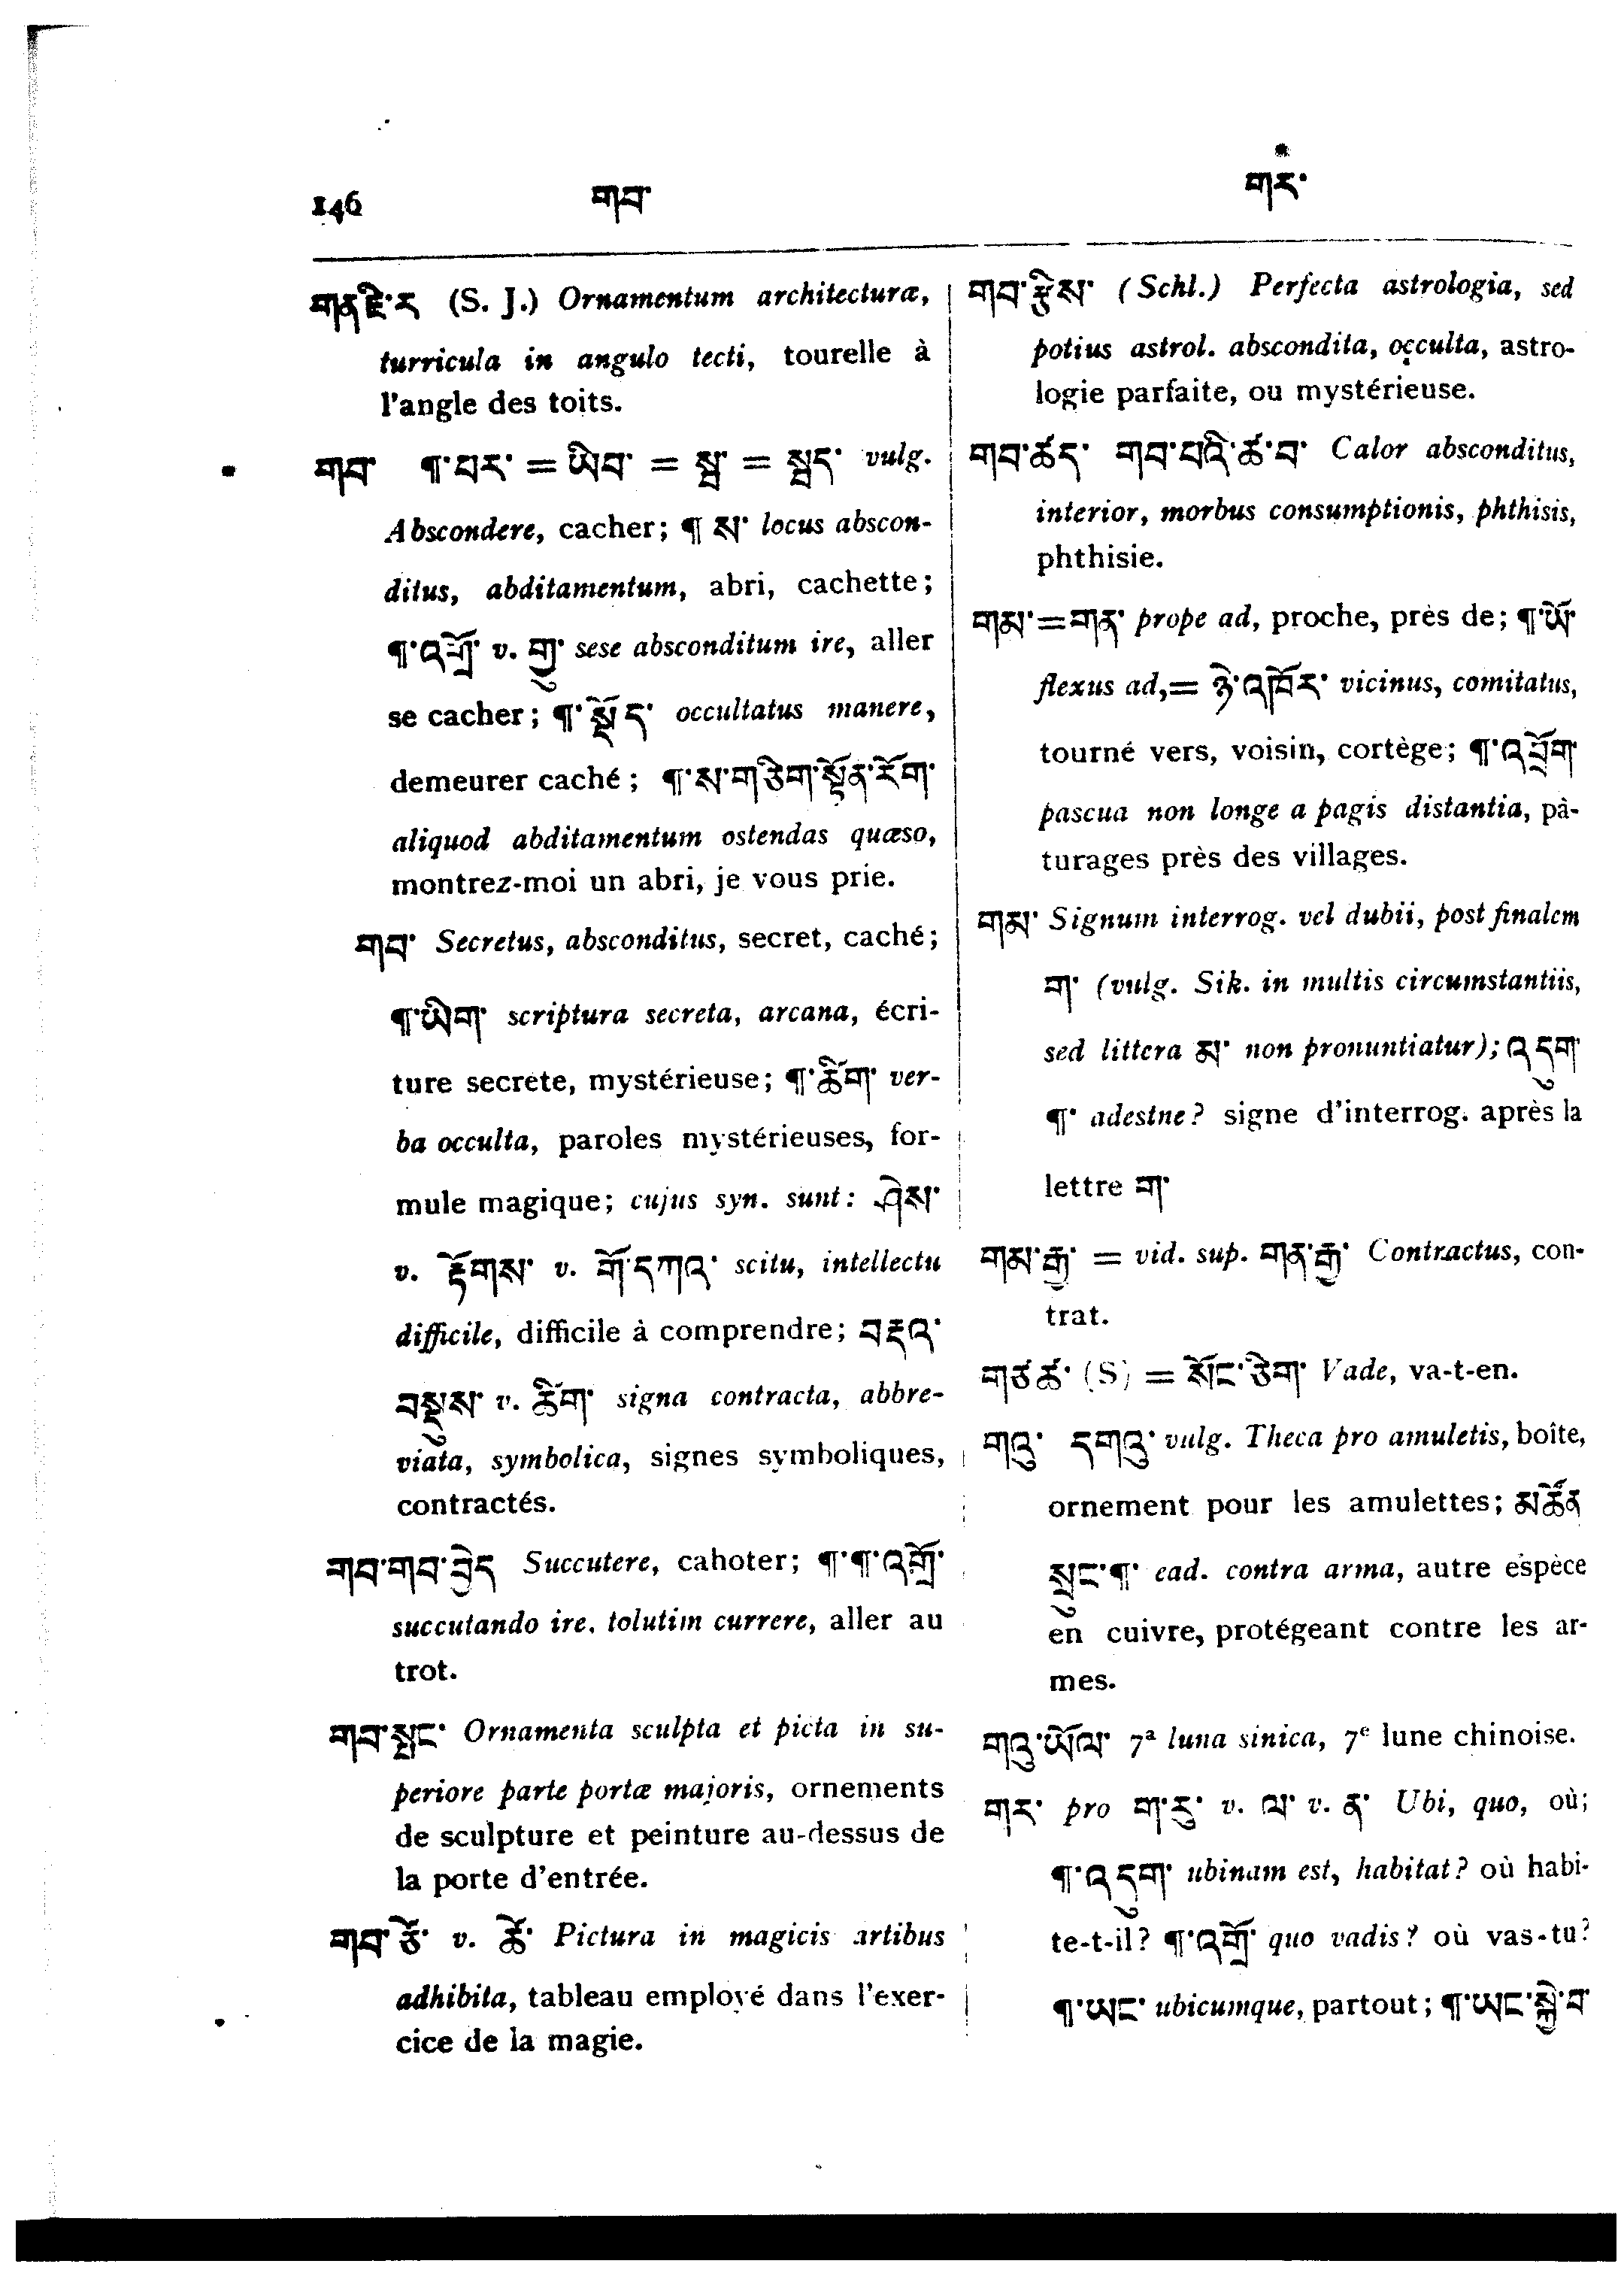 146 གབ་ གར་
གནཛི་ར (S. J.) Ornamentum architecturæ,
turricula in angulo tecti, tourelle à
l'angle des toits.
གབ་ ¶་པར་ = ཡིབ་ = སྦ་ = སྦད་ vulg.
Abscondere, cacher; ¶ ས་ locus abscon-
ditus, abditamentum, abri, cachette;
¶་འགྲོ་ v. གྱུ་ sese absconditum ire, aller
se cacher; ¶་སྡོད་ occultatus manere,
demeurer caché; ¶་ས་གཅིག་སྟོན་རོག་
aliquod abditamentum ostendas quæso,
montrez-moi un abri, je vous prie.
གབ་ Secretus, absconditus, secret, caché;
¶་ཡིག་ scriptura secreta, arcana, écri-
ture secrète, mystérieuse; ¶་ཚིག་ ver-
ba occulta, paroles mystérieuses, for-
mule magique; cujus syn. sunt: ཤེས་
v. རྟོགས་ v. གོ་དཀའ་ scitu, intellectu
difficile, difficile à comprendre; བརྡའ་
བསྡུས་ v. ཚིག་ signa contracta, abbre-
viata, symbolica, signes symboliques,
contractés.
གབ་གབ་བྱེད Succutere, cahoter; ¶་¶་འགྲོ་
succutando ire, tolutim currere, aller au
trot.
གབ་སྤང་ Ornamenta sculpta et picta in su-
periore parte portæ majoris, ornements
de sculpture et peinture au-dessus de
la porte d'entrée.
གབ་ཙེ་ v. ཚེ་ Pictura in magicis artibus
adhibita, tableau employé dans l'exer-
cice de la magie.
གབ་རྩིས་ (Schl.) Perfecta astrologia, sed
potius astrol. abscondita, occulta, astro-
logie parfaite, ou mystérieuse.
གབ་ཚད་ གབ་པའི་ཚ་བ་ Calor absconditus,
interior, morbus consumptionis, phthisis,
phthisie.
གམ་=གན་ prope ad, proche, près de; ¶་ཡོ་
flexus ad,= ཉེ་འཁོར་ vicinus, comitatus,
tourné vers, voisin, cortège; ¶་འབྲོག་
pascua non longe a pagis distantia, pâ-
turages près des villages.
གམ་ Signum interrog. vel dubii, post finalem
ག་ (vulg. Sik. in multis circumstantiis,
sed littera མ་ non pronuntiatur); འདུག་
¶་ adestne? signe d'interrog. après la
lettre ག་
གམ་རྒྱ་ = vid. sup. གན་རྒྱ་ Contractus, con-
trat.
གཙཚ་ (S) = སོང་ཅིག་ Vade, va-t-en.
གའུ་ དགའུ་ vulg. Theca pro amuletis, boîte,
ornement pour les amulettes; མཚོན
སྲུང་¶་ ead. contra arma, autre espèce
en cuivre, protégeant contre les ar-
mes.
གའུ་ཡོལ་ 7ª luna sinica, 7e lune chinoise.
གར་ pro ག་རུ་ v. ལ་ v. ན་ Ubi, quo, où;
¶་འདུག་ ubinam est, habitat? où habi-
te-t-il? ¶་འགྲོ་ quo vadis? où vas-tu?
¶་ཡང་ ubicumque, partout; ¶་ཡང་སྐྱེ་བ་